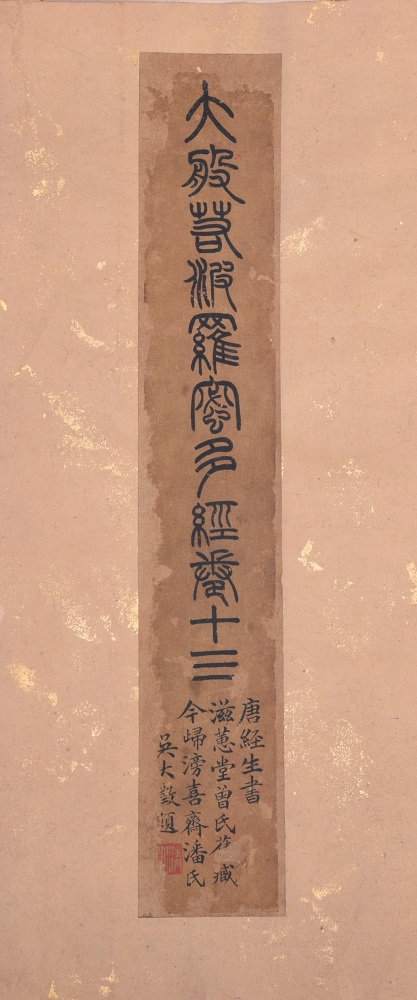 大般若波羅蜜多經卷十三
唐経生書
滋蕙堂曾氏舊臧
今歸滂喜齋潘氏
吳大澂題